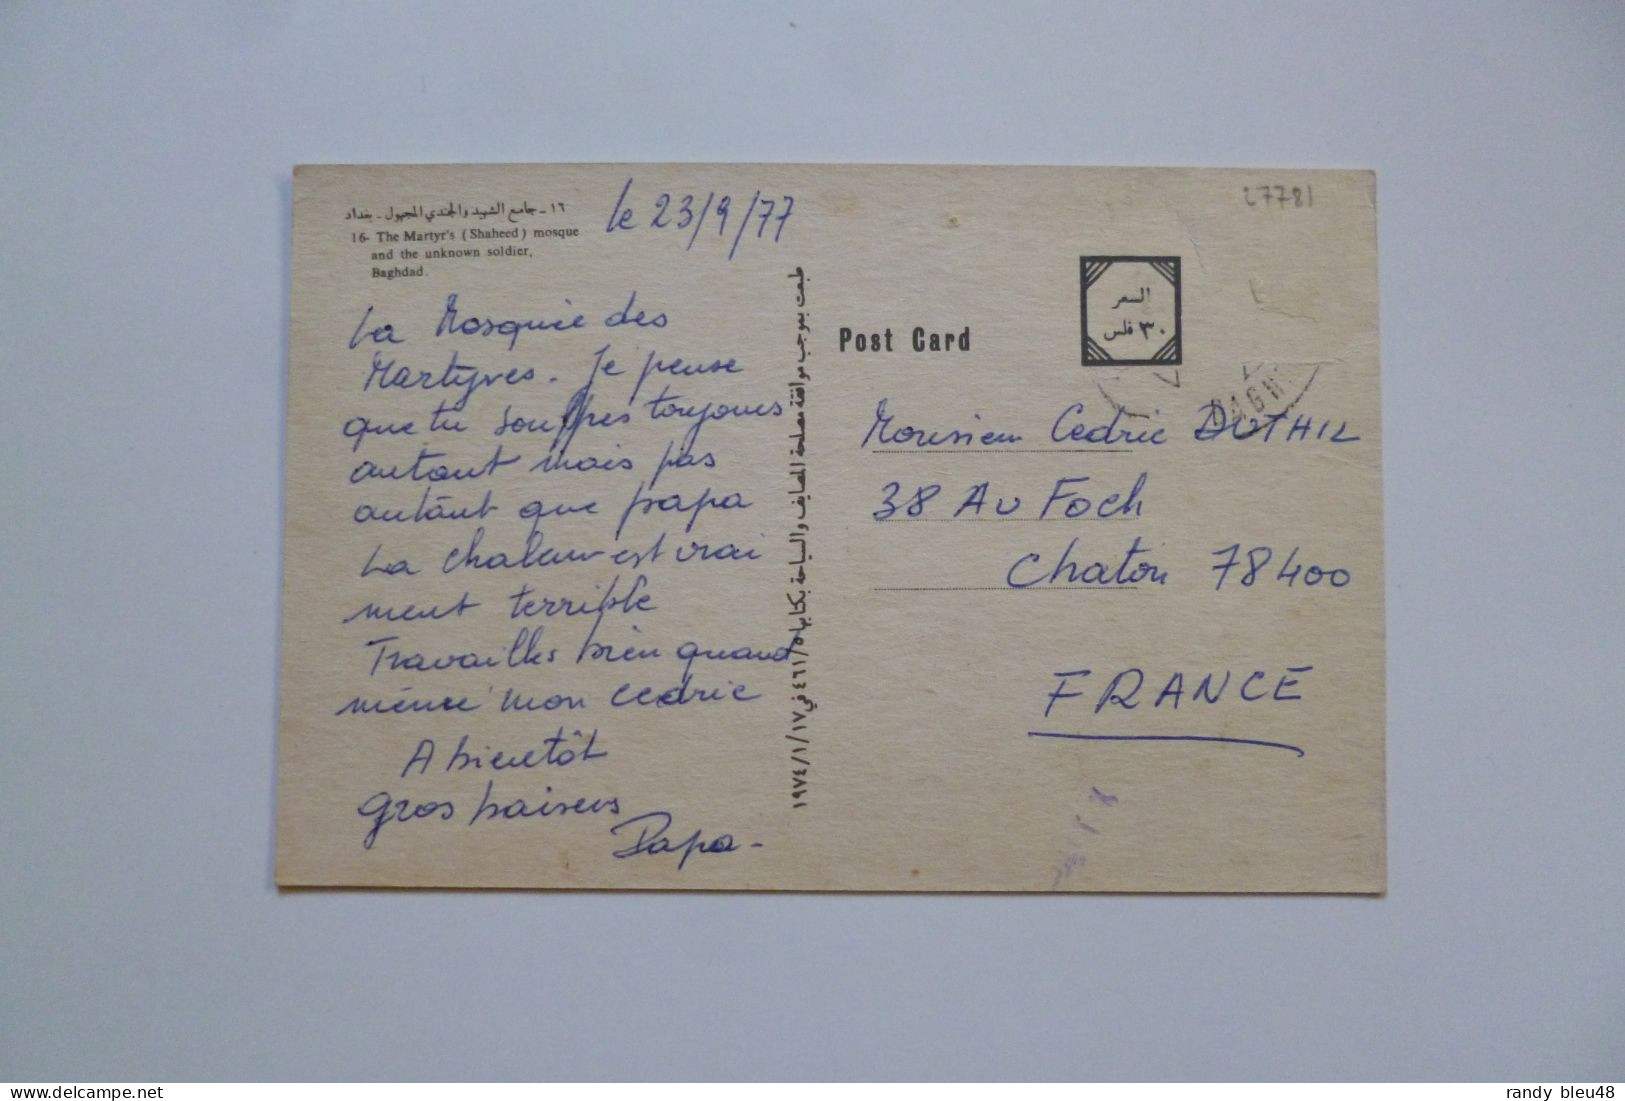 ١٦ - جامع الشهيد والجندي المجهول - بغداد
16- The Martyr's (Shaheed) mosque
and the unknown soldier,
Baghdad.
le 23/9/77
La Mosquée des
Martyres. Je pense
que tu souffres toujours
autant mais pas
autant que papa
La chaleur est vrai
ment terrible
Travailles bien quand
même mon Cedric
A bientôt
gros baisers
Papa -
طبعت بموجب موافقة مصلحة المصايف والسياحة بكتابها ٤٦١/٥ في ١٩٧٤/١/١٧
27781
السعر
٣٠ فلس
Post Card
Monsieur Cedric DUTHIL
38 Av Foch
Chatou 78400
FRANCE
randy bleu48